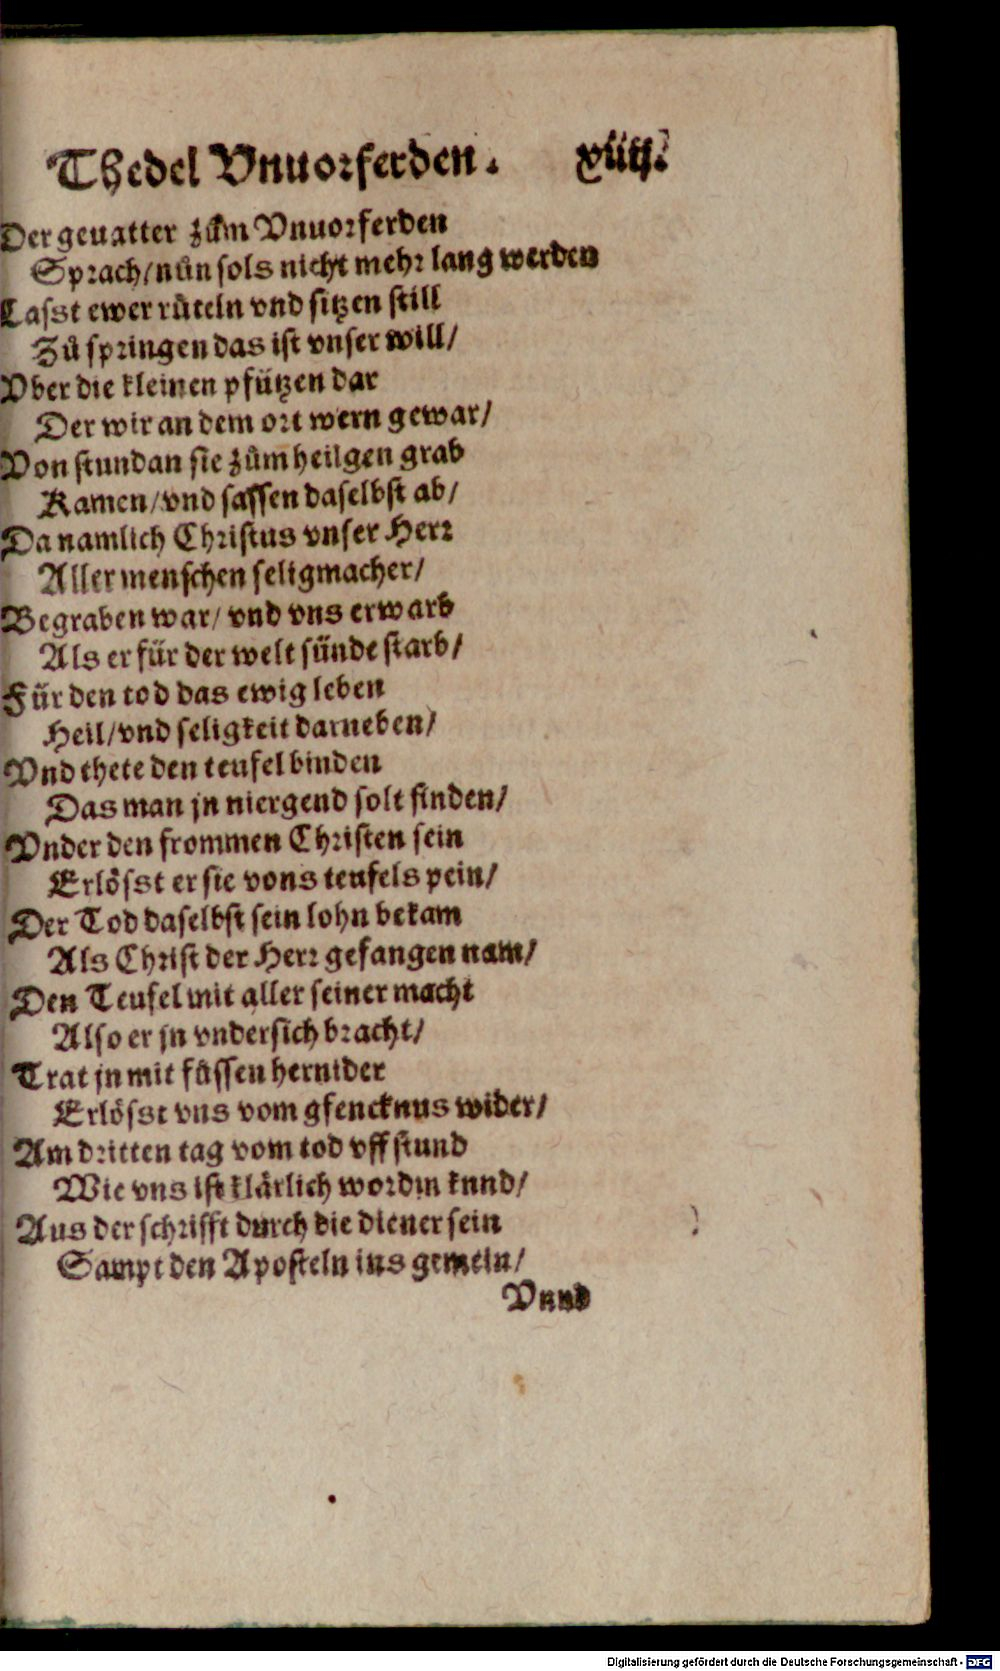 Thedel Vnuorferden.
Der geuatter zům Vnuorferden
Sprach/nůn sols nicht mehr lang werden
Lasst ewer růteln vnd sitzen still
Zů springen das ist vnser will/
Vber die kleinen pfützen dar
Der wir an dem ort wern gewar/
Von stund an sie zům heilgen grab
Kamen/vnd sassen daselbst ab/
Da namlich Christus vnser Herr
Aller menschen seligmacher/
Begraben war/ vnd vns erwarb
Als er für der welt sünde starb/
Für den tod das ewig leben
Heil/vnd seligkeit darneben/
Vnd thete den teufel binden
Das man jn niergend solt finden/
Vnder den frommen Christen sein
Erlösst er sie vons teufels pein/
Der Tod daselbst sein lohn bekam
Als Christ der Herr gefangen nam/
Den Teufel mit aller seiner macht
Also er jn vndersich bracht/
Trat jn mit füssen hernider
Erlösst vns vom gfencknus wider/
Am dritten tag vom tod vff stund
Wie vns ist klärlich wordin knnd/
Aus der schrifft durch die diener sein
Sampt den Aposteln ins gemein/
Vnnd
Digitalisierung gefördert durch die Deutsche Forschungsgemeinschaft - DFG